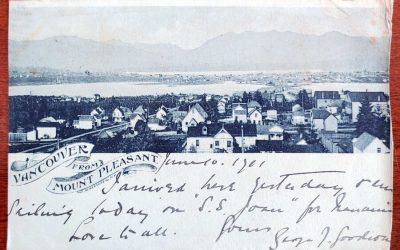 VANCOUVER
FROM
MOUNT PLEASANT
June 10. 1901
I arrived here yesterday & am
Sailing today on "S.S. Joan" for Nanaimo
Love to all. Yours
George J.